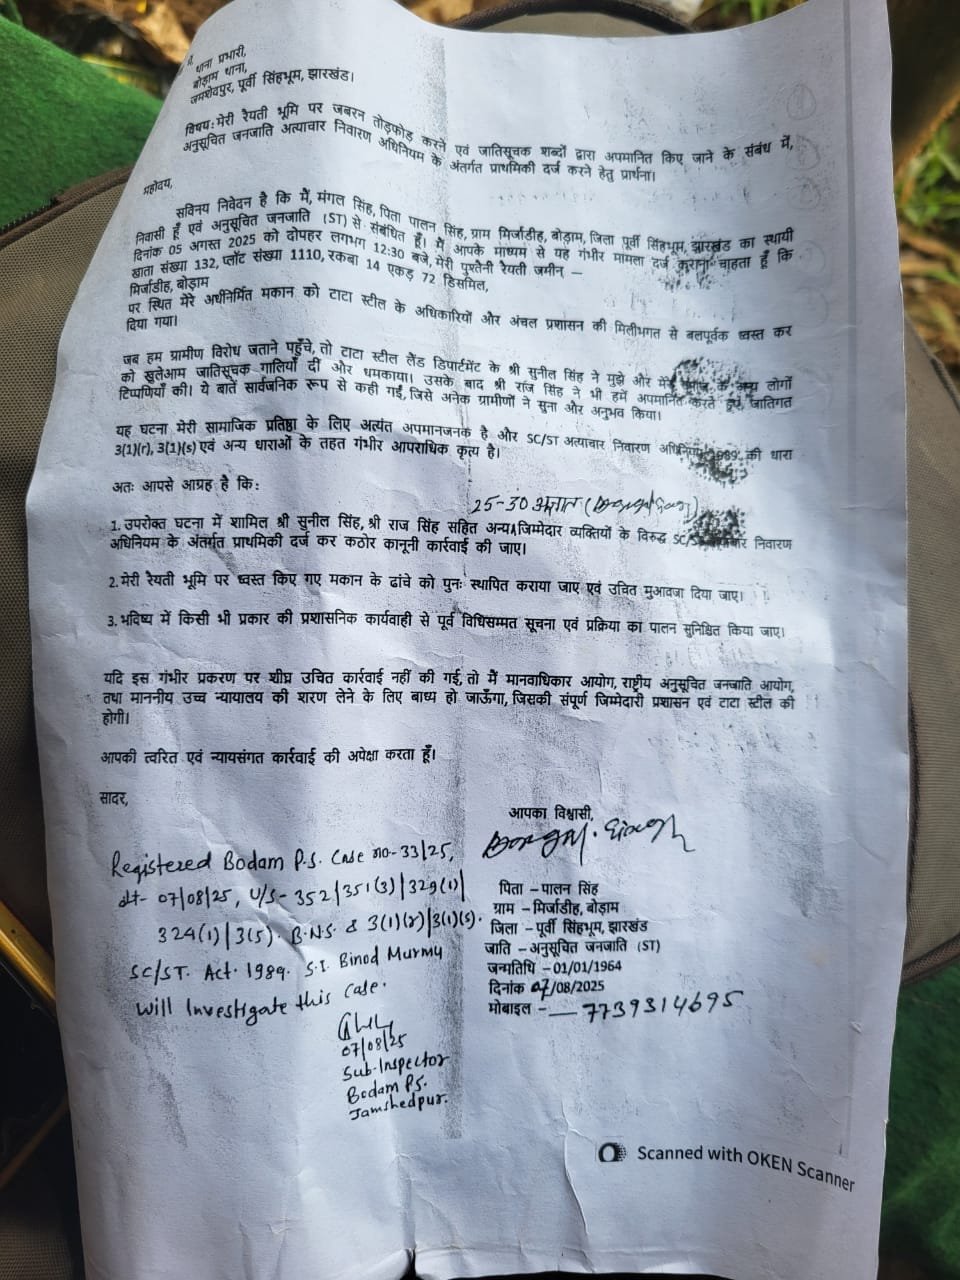 थाना प्रभारी,
बोड़ाम थाना,
जमशेदपुर, पूर्वी सिंहभूम, झारखंड।
विषय: मेरी रैयती भूमि पर जबरन तोड़फोड़ करने एवं जातिसूचक शब्दों द्वारा अपमानित किए जाने के संबंध में,
अनुसूचित जनजाति अत्याचार निवारण अधिनियम के अंतर्गत प्राथमिकी दर्ज करने हेतु प्रार्थना।
महोदय,
सविनय निवेदन है कि मैं, मंगल सिंह, पिता पालन सिंह, ग्राम मिर्जाडीह, बोड़ाम, जिला पूर्वी सिंहभूम, झारखंड का स्थायी
निवासी हूँ एवं अनुसूचित जनजाति (ST) से संबंधित हूँ। मैं आपके माध्यम से यह गंभीर मामला दर्ज कराना चाहता हूँ कि
दिनांक 05 अगस्त 2025 को दोपहर लगभग 12:30 बजे, मेरी पुश्तैनी रैयती जमीन –
खाता संख्या 132, प्लॉट संख्या 1110, रकबा 14 एकड़ 72 डिसमिल,
मिर्जाडीह, बोड़ाम
पर स्थित मेरे अर्धनिर्मित मकान को टाटा स्टील के अधिकारियों और अंचल प्रशासन की मिलीभगत से बलपूर्वक ध्वस्त कर
दिया गया।
जब हम ग्रामीण विरोध जताने पहुँचे, तो टाटा स्टील लैंड डिपार्टमेंट के श्री सुनील सिंह ने मुझे और मेरे के लोगों
को खुलेआम जातिसूचक गालियाँ दीं और धमकाया। उसके बाद श्री राज सिंह ने भी हमें अपमानित करते हुए, जातिगत
टिप्पणियाँ की। ये बातें सार्वजनिक रूप से कही गईं, जिसे अनेक ग्रामीणों ने सुना और अनुभव किया।
यह घटना मेरी सामाजिक प्रतिष्ठा के लिए अत्यंत अपमानजनक है और SC/ST अत्याचार निवारण अधिनियम 1989 की धारा
3(1)(r), 3(1)(s) एवं अन्य धाराओं के तहत गंभीर आपराधिक कृत्य है।
अतः आपसे आग्रह है कि:
25-30
1. उपरोक्त घटना में शामिल श्री सुनील सिंह, श्री राज सिंह सहित अन्य जिम्मेदार व्यक्तियों के विरुद्ध निवारण
अधिनियम के अंतर्गत प्राथमिकी दर्ज कर कठोर कानूनी कार्रवाई की जाए।
2. मेरी रैयती भूमि पर ध्वस्त किए गए मकान के ढांचे को पुनः स्थापित कराया जाए एवं उचित मुआवजा दिया जाए।
3. भविष्य में किसी भी प्रकार की प्रशासनिक कार्यवाही से पूर्व विधिसम्मत सूचना एवं प्रक्रिया का पालन सुनिश्चित किया जाए।
यदि इस गंभीर प्रकरण पर शीघ्र उचित कार्रवाई नहीं की गई, तो मैं मानवाधिकार आयोग, राष्ट्रीय अनुसूचित जनजाति आयोग,
तथा माननीय उच्च न्यायालय की शरण लेने के लिए बाध्य हो जाऊँगा, जिसकी संपूर्ण जिम्मेदारी प्रशासन एवं टाटा स्टील की
होगी।
आपकी त्वरित एवं न्यायसंगत कार्रवाई की अपेक्षा करता हूँ।
सादर,
आपका विश्वासी,
पिता – पालन सिंह
ग्राम – मिर्जाडीह, बोड़ाम
जिला – पूर्वी सिंहभूम, झारखंड
जाति – अनुसूचित जनजाति (ST)
जन्मतिथि – 01/01/1964
दिनांक 07/08/2025
मोबाइल – 7739314695
Registered Bodam P.S. Case no-33/25,
dt- 07/08/25, U/S- 352/351(3)/329(1)/
324(1)/3(5). B.N.S. & 3(1)(r)/3(1)(s).
SC/ST. Act. 1989. S.I. Binod Murmu
will Investigate this case.
07/08/25
Sub-Inspector
Bodam P.S.
Jamshedpur.
Scanned with OKEN Scanner